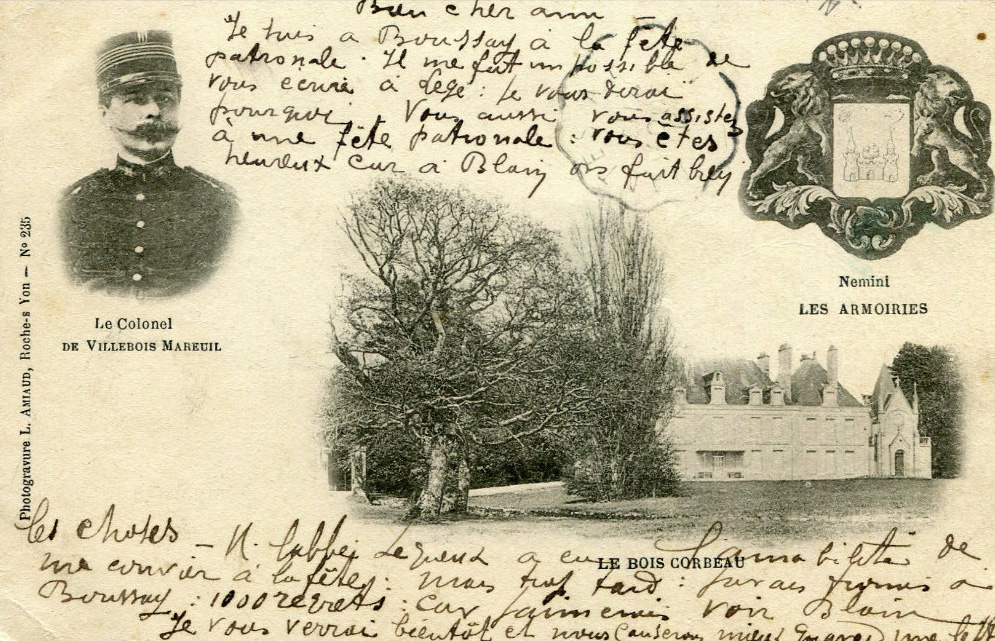 Bien cher ami
Je suis a Boussay à la fête
patronale. Il me fut impossible de
vous ecrire à Legé : je vous dirai
pourquoi. Vous aussi vous assistez
à une fête patronale : vous êtes
heureux car à Blain on fait bey
Nemini
LES ARMOIRIES
Le Colonel
DE VILLEBOIS MAREUIL
Photogravure L. AMIAUD, Roche-s Yon — No 235
LE BOIS CORBEAU
les choses — M. l'abbé a eu l'amabilité de
me convier à la fête : mais trop tard : j'avais promis a
Boussay : 1000 regrets : car j'aimerais voir Blain
Je vous verrai bientôt et nous causerons mieux